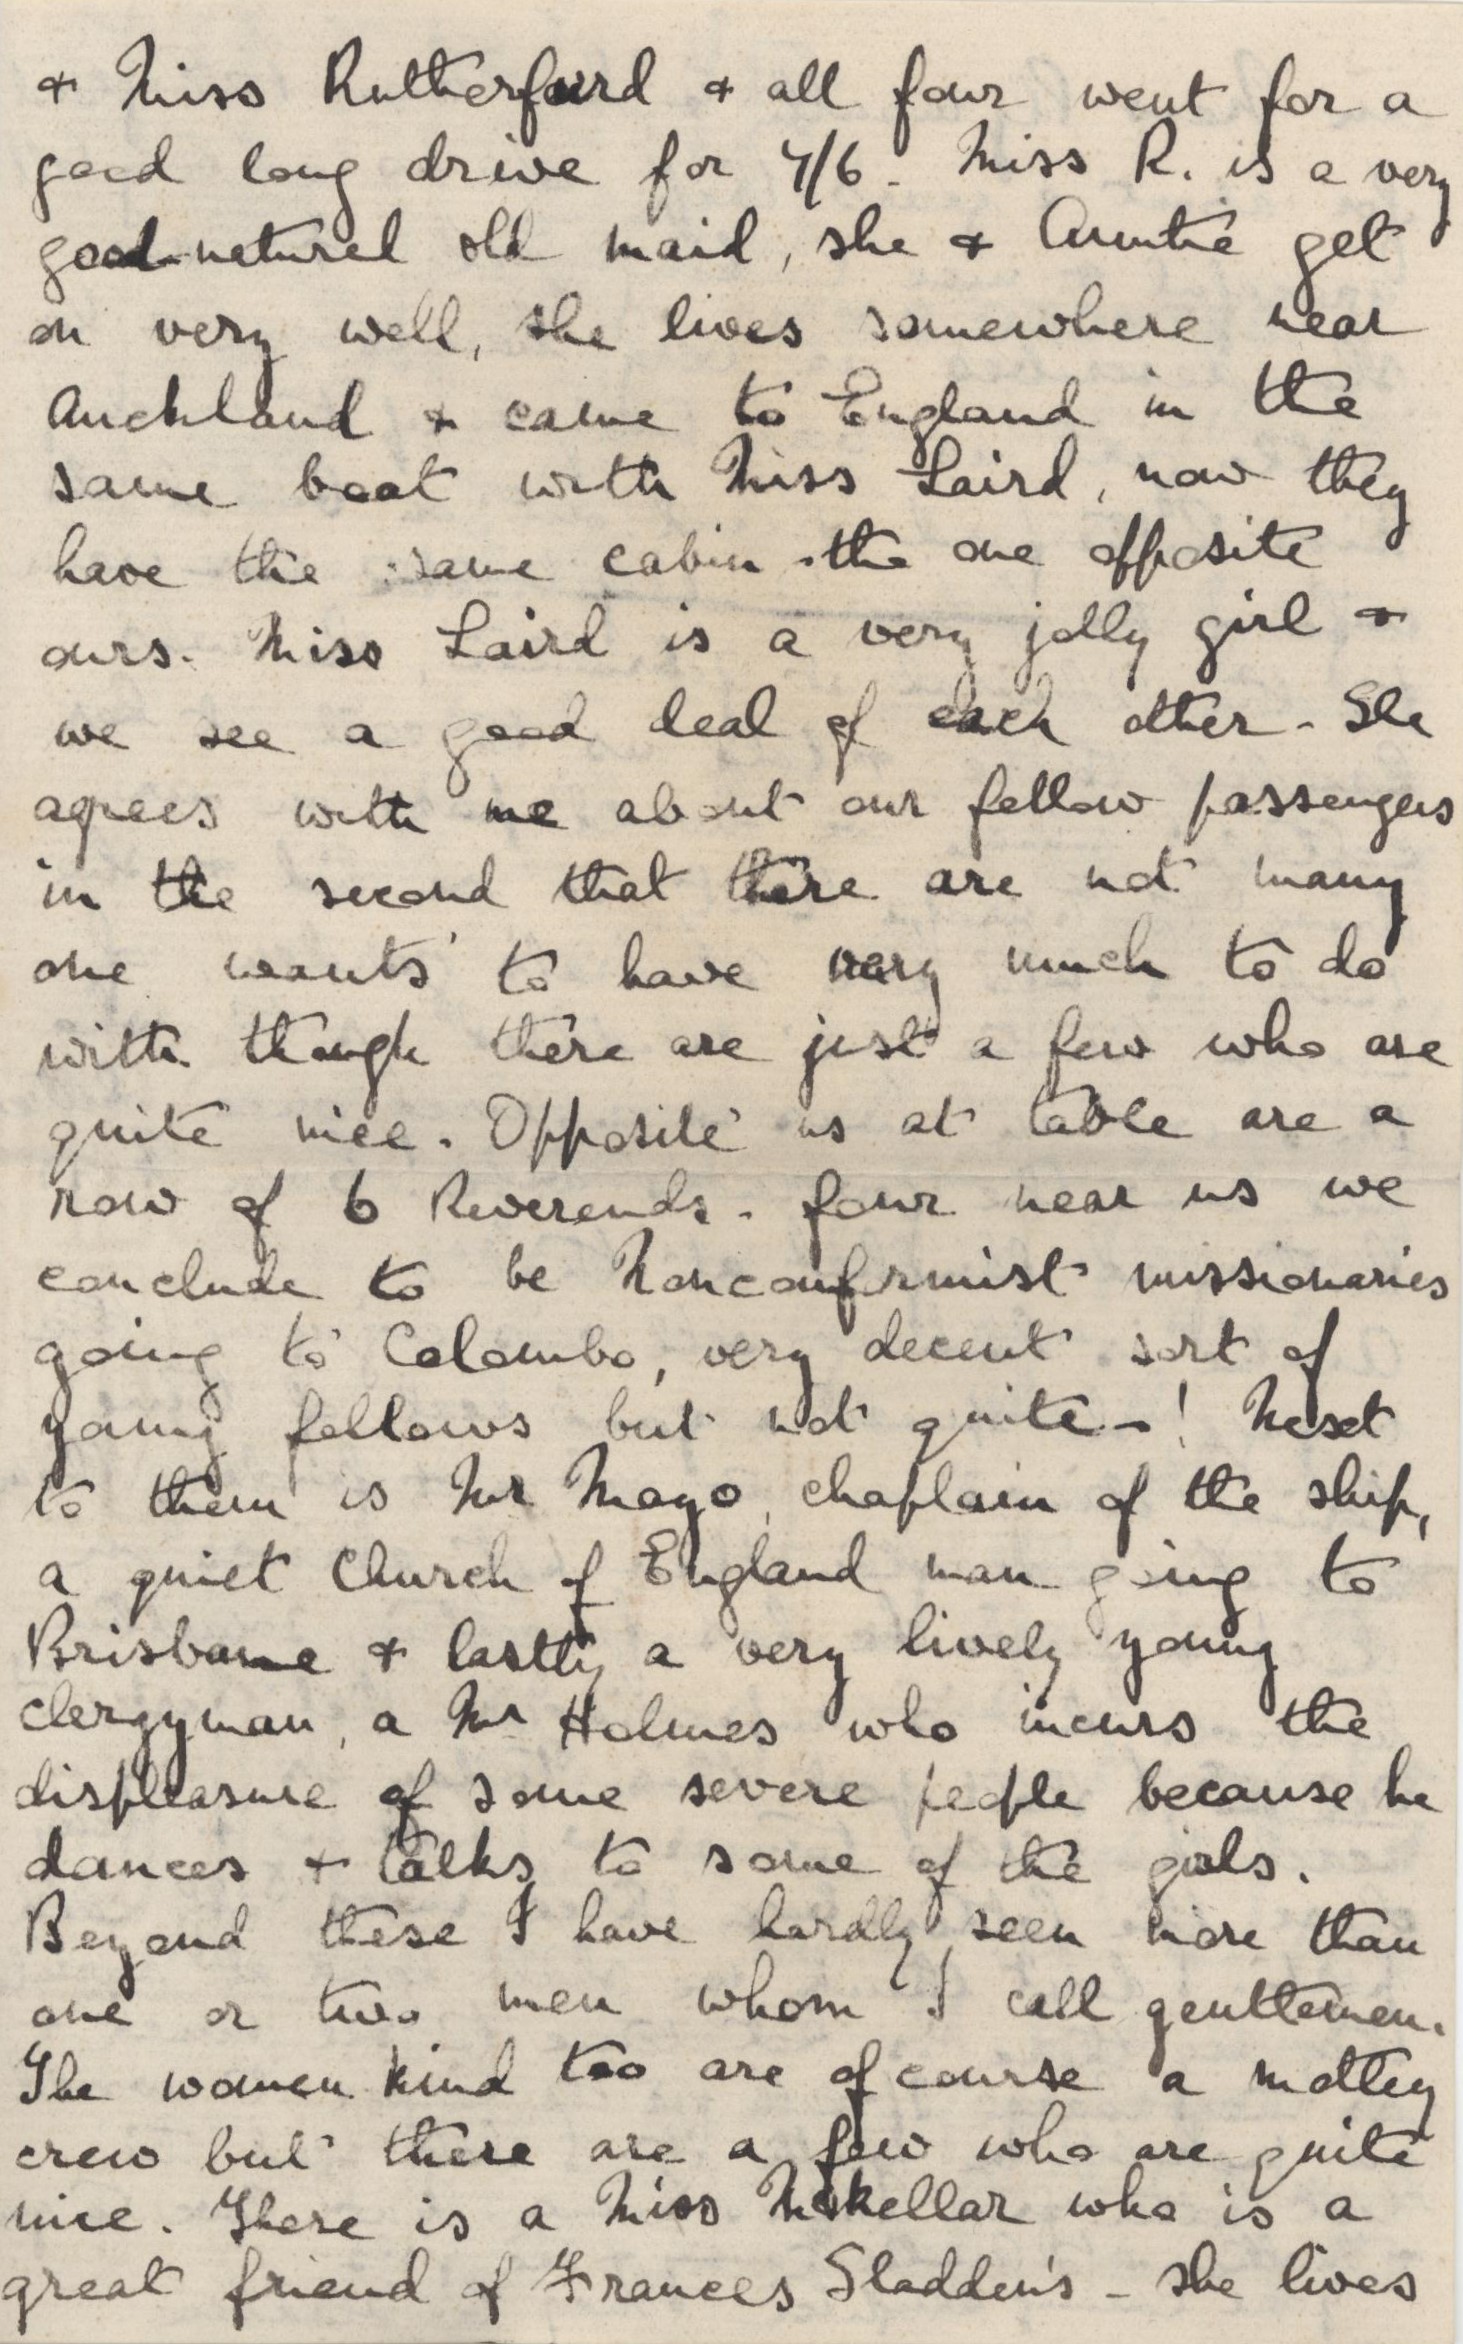 & Miss Rutherfurd & all four went for a
good long drive for 7/6. Miss R. is a very
good-natured old maid, she & Auntie get
on very well, she lives somewhere near
Auckland & came to England in the
same boat with Miss Laird, now they
have the same cabin - the one opposite
ours. Miss Laird is a very jolly girl &
we see a good deal of each other - She
agrees with me about our fellow passengers
in the second that there are not many
one wants to have very much to do
with though there are just a few who are
quite nice. Opposite us at table are a
row of 6 Reverends - four near us we
conclude to be Nonconformist missionaries
going to Colombo, very decent sort of
young fellows but not quite - ! Next
to them is Mr Mayo, chaplain of the ship,
a quiet Church of England man going to
Brisbane & lastly a very lively young
clergyman, a Mr Holmes who incurs the
displeasure of some severe people because he
dances & talks to some of the girls.
Beyond these I have hardly seen more than
one or two men whom I call gentlemen.
The women kind too are of course a motley
crew but there are a few who are quite
nice. There is a Miss McKellar who is a
great friend of Frances Sladden's - she lives